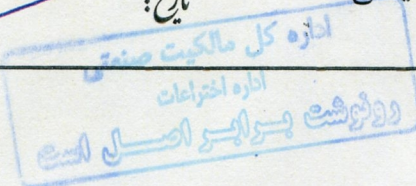 تاریخ:
اداره کل مالکیت صنعتی
اداره اختراعات
رونوشت برابر اصل است